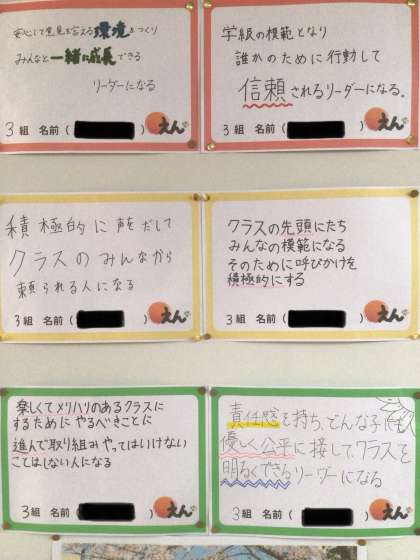 安心して意見を言える環境をつくり
みんなと一緒に成長できる
リーダーになる
3組 名前( ) えん
学級の模範となり
誰かのために行動して
信頼されるリーダーになる。
3組 名前( ) えん
積極的に声をだして
クラスのみんなから
頼られる人になる
3組 名前( ) えん
クラスの先頭にたち
みんなの模範になる
そのために呼びかけを
積極的にする
3組 名前( ) えん
楽しくてメリハリのあるクラスに
するためにやるべきことに
進んで取り組みやってはいけない
ことはしない人になる
3組 名前( ) えん
責任感を持ち、どんな子にも
優しく公平に接して、クラスを
明るくできるリーダーになる
3組 名前( ) えん